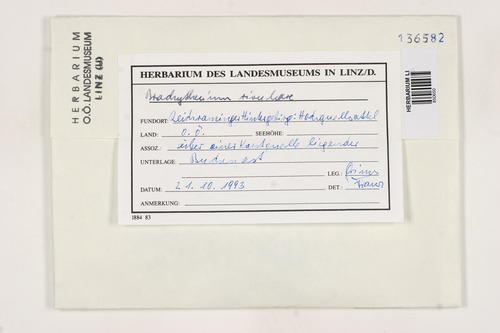 HERBARIUM
O.Ö. LANDESMUSEUM
LINZ (LI)
136582
HERBARIUM LI
HERBARIUM DES LANDESMUSEUMS IN LINZ/D.
Brachythecium rivulare
FUNDORT: Reichraminger Hintergebirge:
LAND: O.Ö. SEEHÖHE:
ASSOZ.: über einer Karstquelle liegender
UNTERLAGE: Buchenast
LEG.: Grims
DATUM: 21.10.1993 DET.: Franz
ANMERKUNG:
1884 83